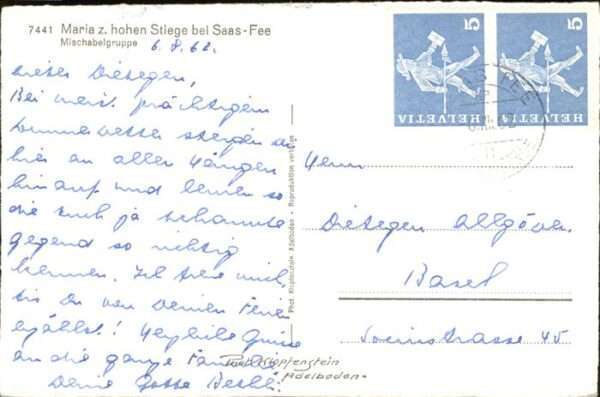 7441 Maria z. hohen Stiege bei Saas-Fee
Mischabelgruppe
6.8.62.
Lieber Dietegen,
Bei meist prächtigem
Sommerwetter steigen
hier an allen Hängen
hinauf und lernen so
die Euch ja bekannte
Gegend so richtig
kennen. Ich freue mich,
bis Du von Deinen Ferien
erzählst! Herzliche Grüsse
an die ganze Familie
Deine Gotte
Phot. Klopfenstein, Adelboden • Reproduktion verboten
Klopfenstein
Adelboden
5
HELVETIA
5
HELVETIA
SAAS-FEE
Herrn
Dietegen Allgöwer
Basel
45